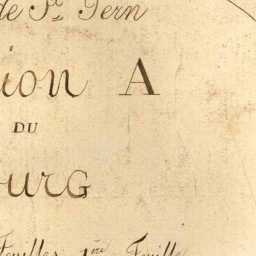 de St. Fern
tion A
DU
ourg
Feuilles, 1ère Feuille